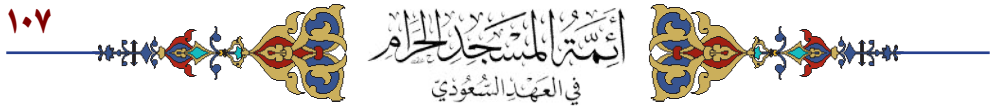 ١٠٧
أَئِمَّةُ المَسْجِدِ الحَرَامِ
فِي العَهْدِ السُّعُودِيّ